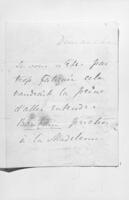 Dimanche
Si vous n'êtes pas
trop fatiguée cela
vaudrait la peine
d'aller entendre
prêcher
à la Madeleine